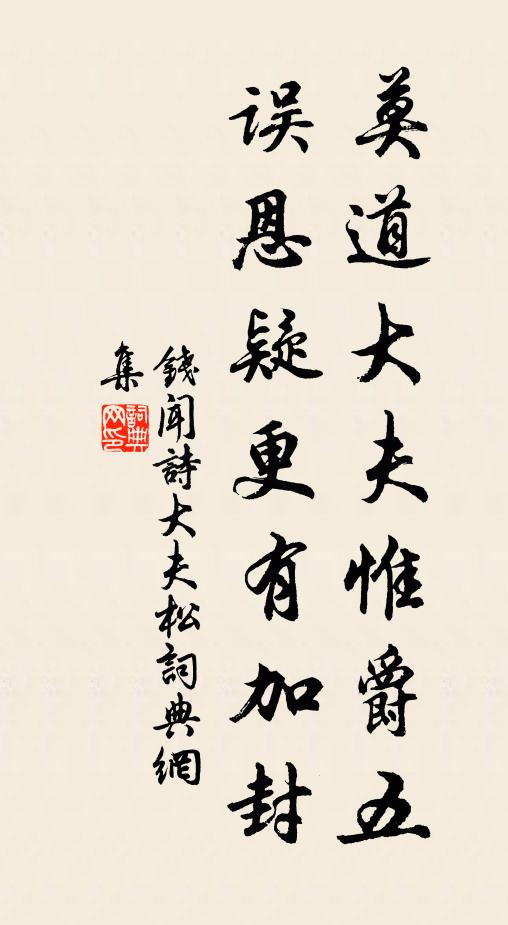 莫道大夫惟爵五
误恩疑更有加封
錢聞詩大夫松詞典網
集
詞典
网印